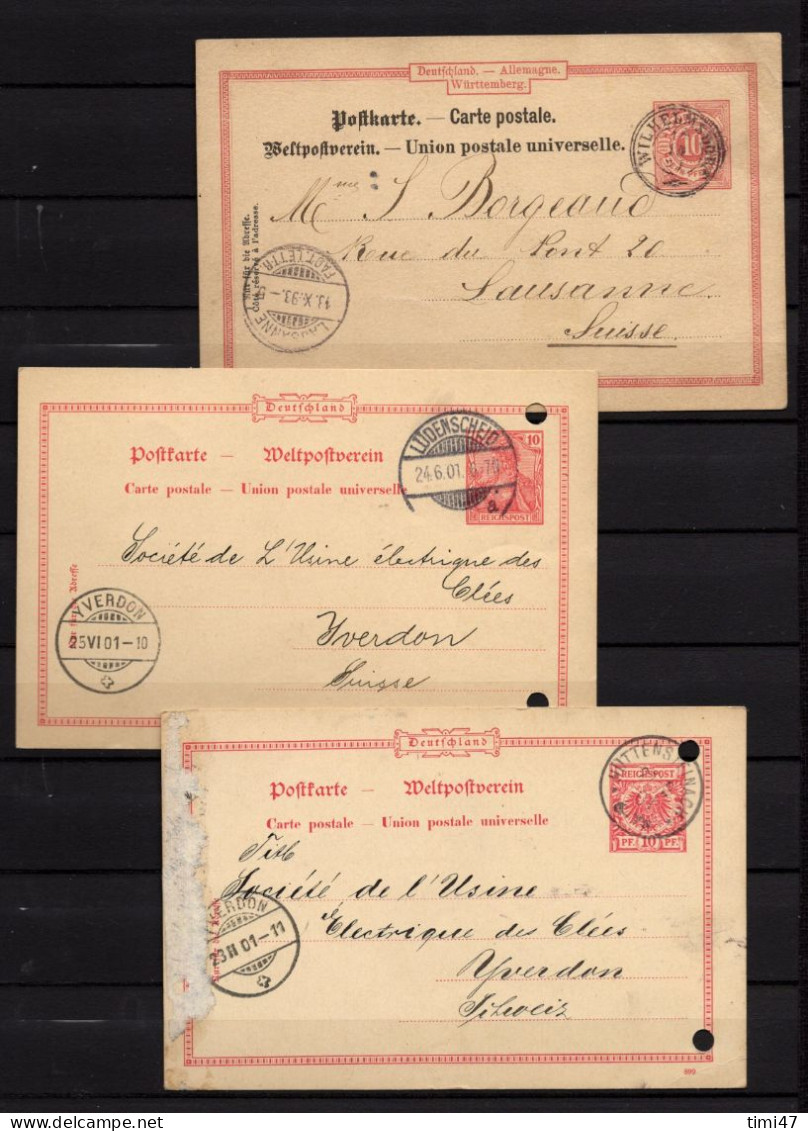 Deutschland. — Allemagne.
Württemberg.
Postkarte. — Carte postale.
Weltpostverein. — Union postale universelle.
10
WILHELMSDORF
Nur für die Adresse.
Côté réservé à l'adresse.
Mme S Borgeaud
Rue du Pont 20
Lausanne
Suisse
LAUSANNE
FACT. LETTR.
11.X.93.
Deutschland
Postkarte — Weltpostverein
Carte postale — Union postale universelle
10
REICHSPOST
LÜDENSCHEID
24.6.01.
a.
Nur für die Adresse
Société de L'Usine électrique des
Clées
Yverdon
Suisse
YVERDON
25 VI 01-10
Deutschland
Postkarte — Weltpostverein
Carte postale — Union postale universelle
REICHSPOST
PF. 10 PF.
HÜTTENSTEINACH
Titl
Société de l'Usine
Electrique des Clées
Yverdon
Schweiz
YVERDON
23 II 01-11
timi47